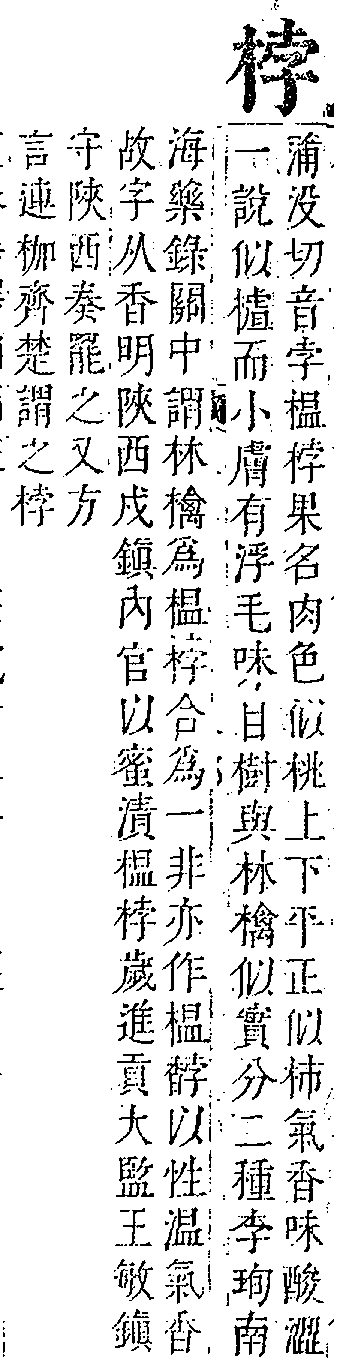 桲
蒲没切音孛榲桲果名肉色似桃上下平正似柿氣香味酸澀
一說似樝而小膚有浮毛味甘樹與林檎似實分二種李珣南
海藥錄關中謂林檎爲榲桲合爲一非亦作榲馞以性温氣香
故字从香明陝西戍鎭內官以蜜漬榲桲歲進貢大監王敏鎭
守陝西奏罷之又方
言連枷齊楚謂之桲